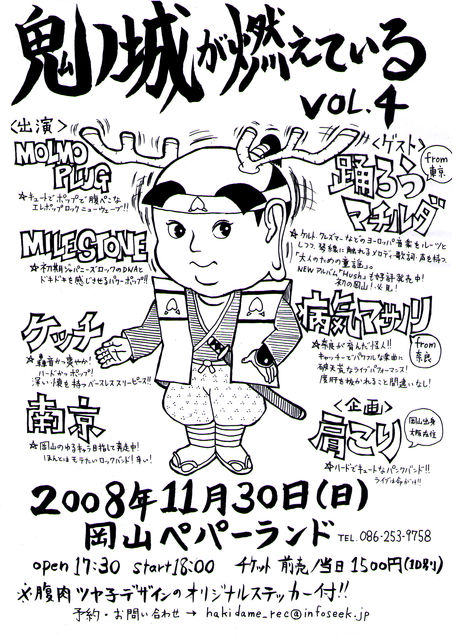 鬼ノ城が燃えている
VOL.4
<出演>
MOLMO
PLUG
☆キュートでポップで腹ペこな
エレポップロックニューウェーブ!!
MILESTONE
☆初期ジャパニーズロックのDNAと
ドキドキを感じさせるパワーポップ!!
ケッチ
☆轟音かつ爽やか!
ハードかつポップ!
深い懐を持つベースレススリーピース!!
南京
☆岡山のゆるキャラ目指して奔走中!
ほんとはモテたいロックバンド!辛い!
<ゲスト>
from
東京
踊ろう
マチルダ
☆ケルト、クレズマーなどのヨーロッパ音楽をルーツと
しつつ、琴線に触れるメロディ・歌詞・声を持つ
「大人のための童謡」。
NEWアルバム「Hush」も好評発売中!
初の岡山!必見!
病気マサノリ
from
奈良
☆奈良が育んだ怪人!!
キャッチーでパワフルな楽曲に
破天荒なライブパフォーマンス!
度肝を抜かれること間違いなし!
<企画>
肩こり
岡山出身
大阪在住
☆ハードでキュートなパンクバンド!!
ライブは命がけ!!
2008年11月30日(日)
岡山ペパーランド
TEL.086-253-9758
open 17:30 start 18:00 チケット 前売/当日1500円(1D別)
※腹肉ツヤ子デザインのオリジナルステッカー付!!
予約・お問い合わせ→hakidame_rec@infoseek.jp